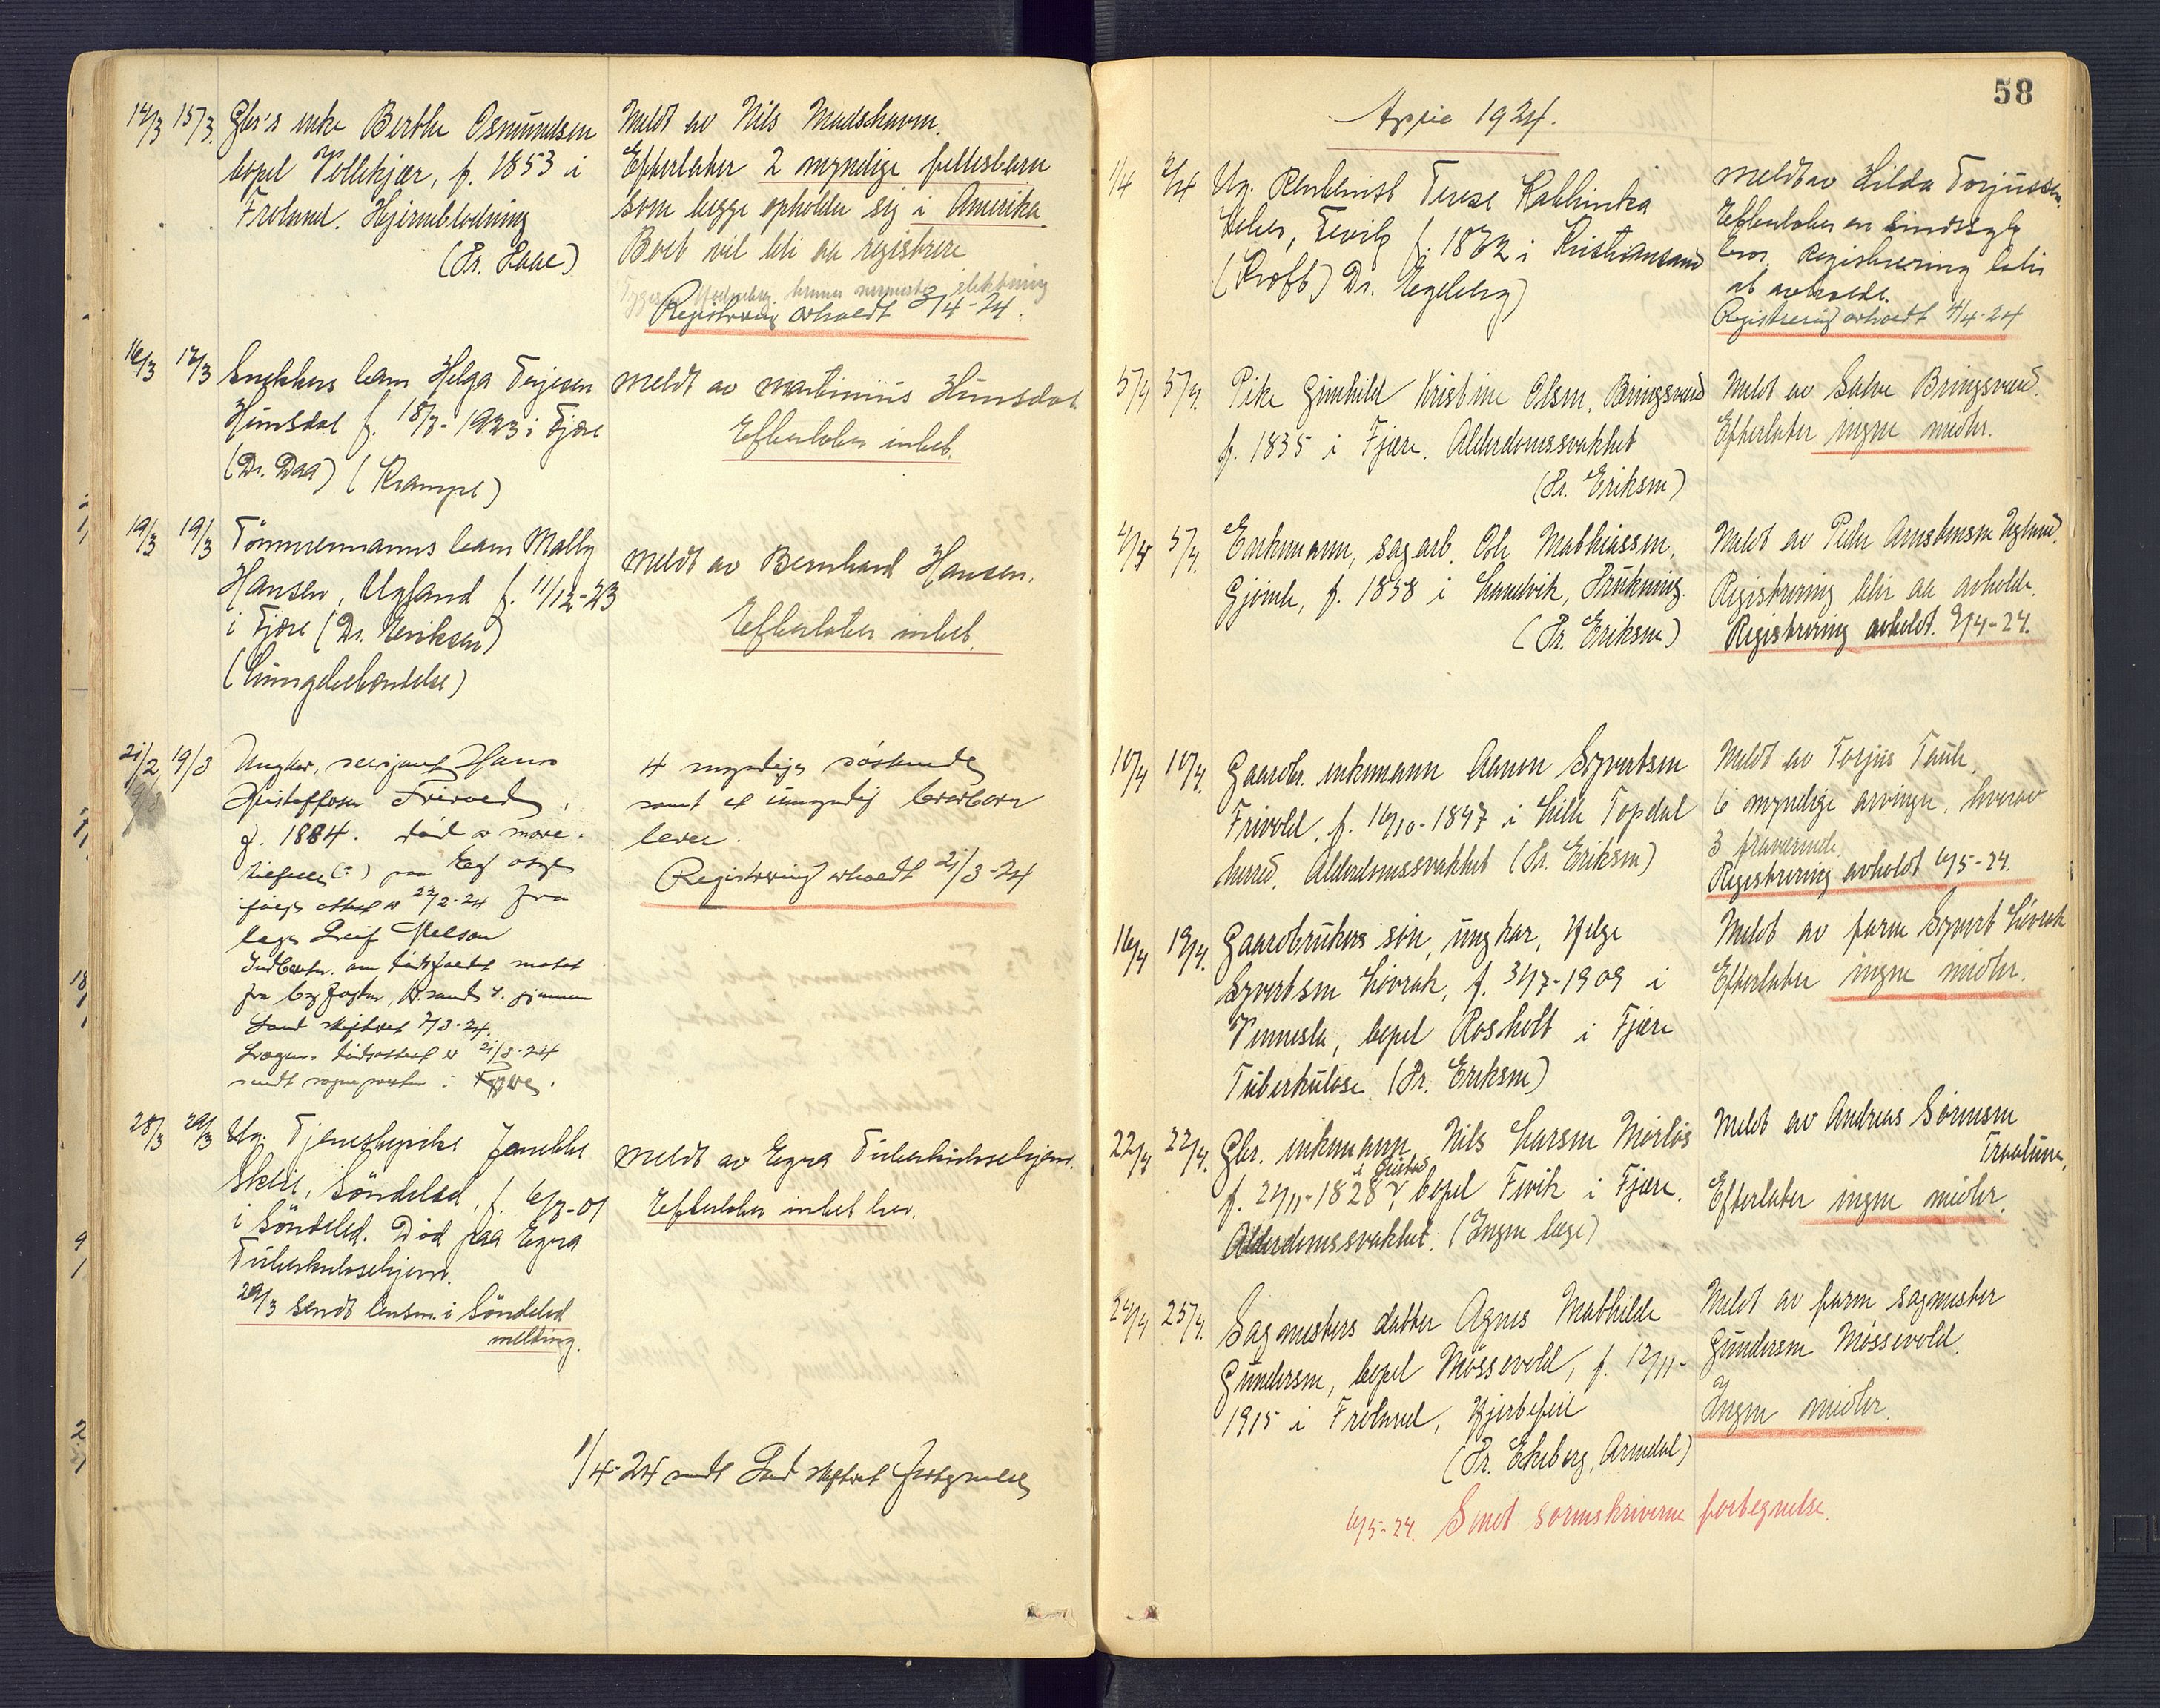 14/3 15/3. Gbr's enke Berthe Osmundsen
bopel Vollekjær, f. 1853 i
Froland. Hjerneblødning
(Dr. Daae)
Meldt av Nils Madshavn.
Efterlater 2 myndige fellesbarn
som begge opholder sig i Amerika.
Boet vil bli aa registrere
Registrering avholdt 3/4-24.
16/3 17/3 Snekkers barn Helga Terjesen
Hunsdal f. 18/3-1923 i Fjære
(Dr. Daa) (Krampe)
Meldt av Martinius Hunsdal
Efterlater intet.
19/3 19/3 Tömmermanns barn Mally
Hansen, Ugland f. 11/12-23
i Fjære (Dr. Eriksen)
(Lungebetændelse)
Meldt av Bernhard Hansen.
Efterlater intet.
21/2 19/3 Ungkar, sersjant Hans
Kristoffersen Frivold,
f. 1884. död av
paa Eeg asyl
ifølge attest av 22/2-24 fra
læge Leif
Indberetn. om dödsfaldet motat
fra byfogden, Kr.sand S. gjennem
Sand skifteret 7/3-24.
Lægens dödsattest av 21/2-24
sendt sognepresten i Fjære.
4 myndige söskende
samt et umyndig brorbarn
lever.
Registrering avholdt 21/3-24
28/3 29/3 Ug. Tjenestepike Janikke
Skeie, Söndeled, f. 6/3-01
i Söndeled. Död paa Egra
Tuberkulosehjem.
29/3 sendt lensm. i Söndeled
melding.
Meldt av Egra Tuberkulosehjem.
Efterlater intet her.
1/4-24 sendt Sand skifteret fortegnelse
58
April 1924.
1/4 2/4 Ug. Rentenist Terese Kathinka
Heher, Fevik f. 1872 i Kristiansand
(Kræft) Dr. Egeberg)
Meldt av Hilda Torjussen.
Efterlater en sindssyk
bror. Registrering blir
at avholde.
Registrering avholdt 4/4-24
5/4 5/4. Pike Gunhild Kristine Olsen, Bringsværd
f. 1835 i Fjære. Alderdomssvakhet
(Dr. Eriksen)
Meldt av Salve Bringsværd.
Efterlater ingen midler.
4/4 5/4. Enkemann, sagarb. Ole Mathiassen,
Gjömle, f. 1858 i Landvik, Drukning.
(Dr. Eriksen)
Meldt av Peder Arnstensen Ugland.
Registrering blir aa avholde.
Registrering avholdt. 9/4-24.
10/4 10/4. Gaardbr. enkemann Aanon Syvertsen
Frivold, f. 16/10-1847 i Lille Topdal
herred. Alderdomssvakhet (Dr. Eriksen)
Meldt av Torjus Taule.
6 myndige arvinger, hvorav
3 fraværende.
Registrering avholdt 6/5-24.
16/4 19/4. Gaardbrukers sön, ungkar, Helge
Syvertsen Lövrak, f. 31/7-1909 i
Vennesla, bopel Rosholt i Fjære
Tuberkulose. (Dr. Eriksen)
Meldt av faren Syvert Lövrak
Efterlater ingen midler.
22/4 22/4. Gbr. enkemann Nils Larsen Morløs
f. 24/11-1828 i Gristad, bopel Fevik i Fjære.
Alderdomssvakhet. (Ingen læge)
Meldt av Andreas Sörensen
Traalum.
Efterlater ingen midler.
24/4 25/4. Sagmesters datter Agnes Mathilde
Gundersen, bopel Mössevold, f. 12/11-
1915 i Froland, Hjertefeil
(Dr. Ekeberg, Arendal)
Meldt av faren sagmester
Gundersen Mössevold.
Ingen midler.
6/5-24. Sendt sorenskriveren fortegnelse.